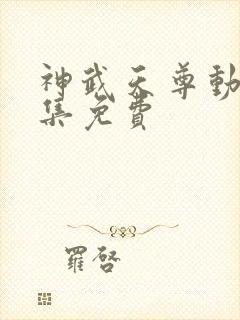 神武天尊動
集免費
羅啓